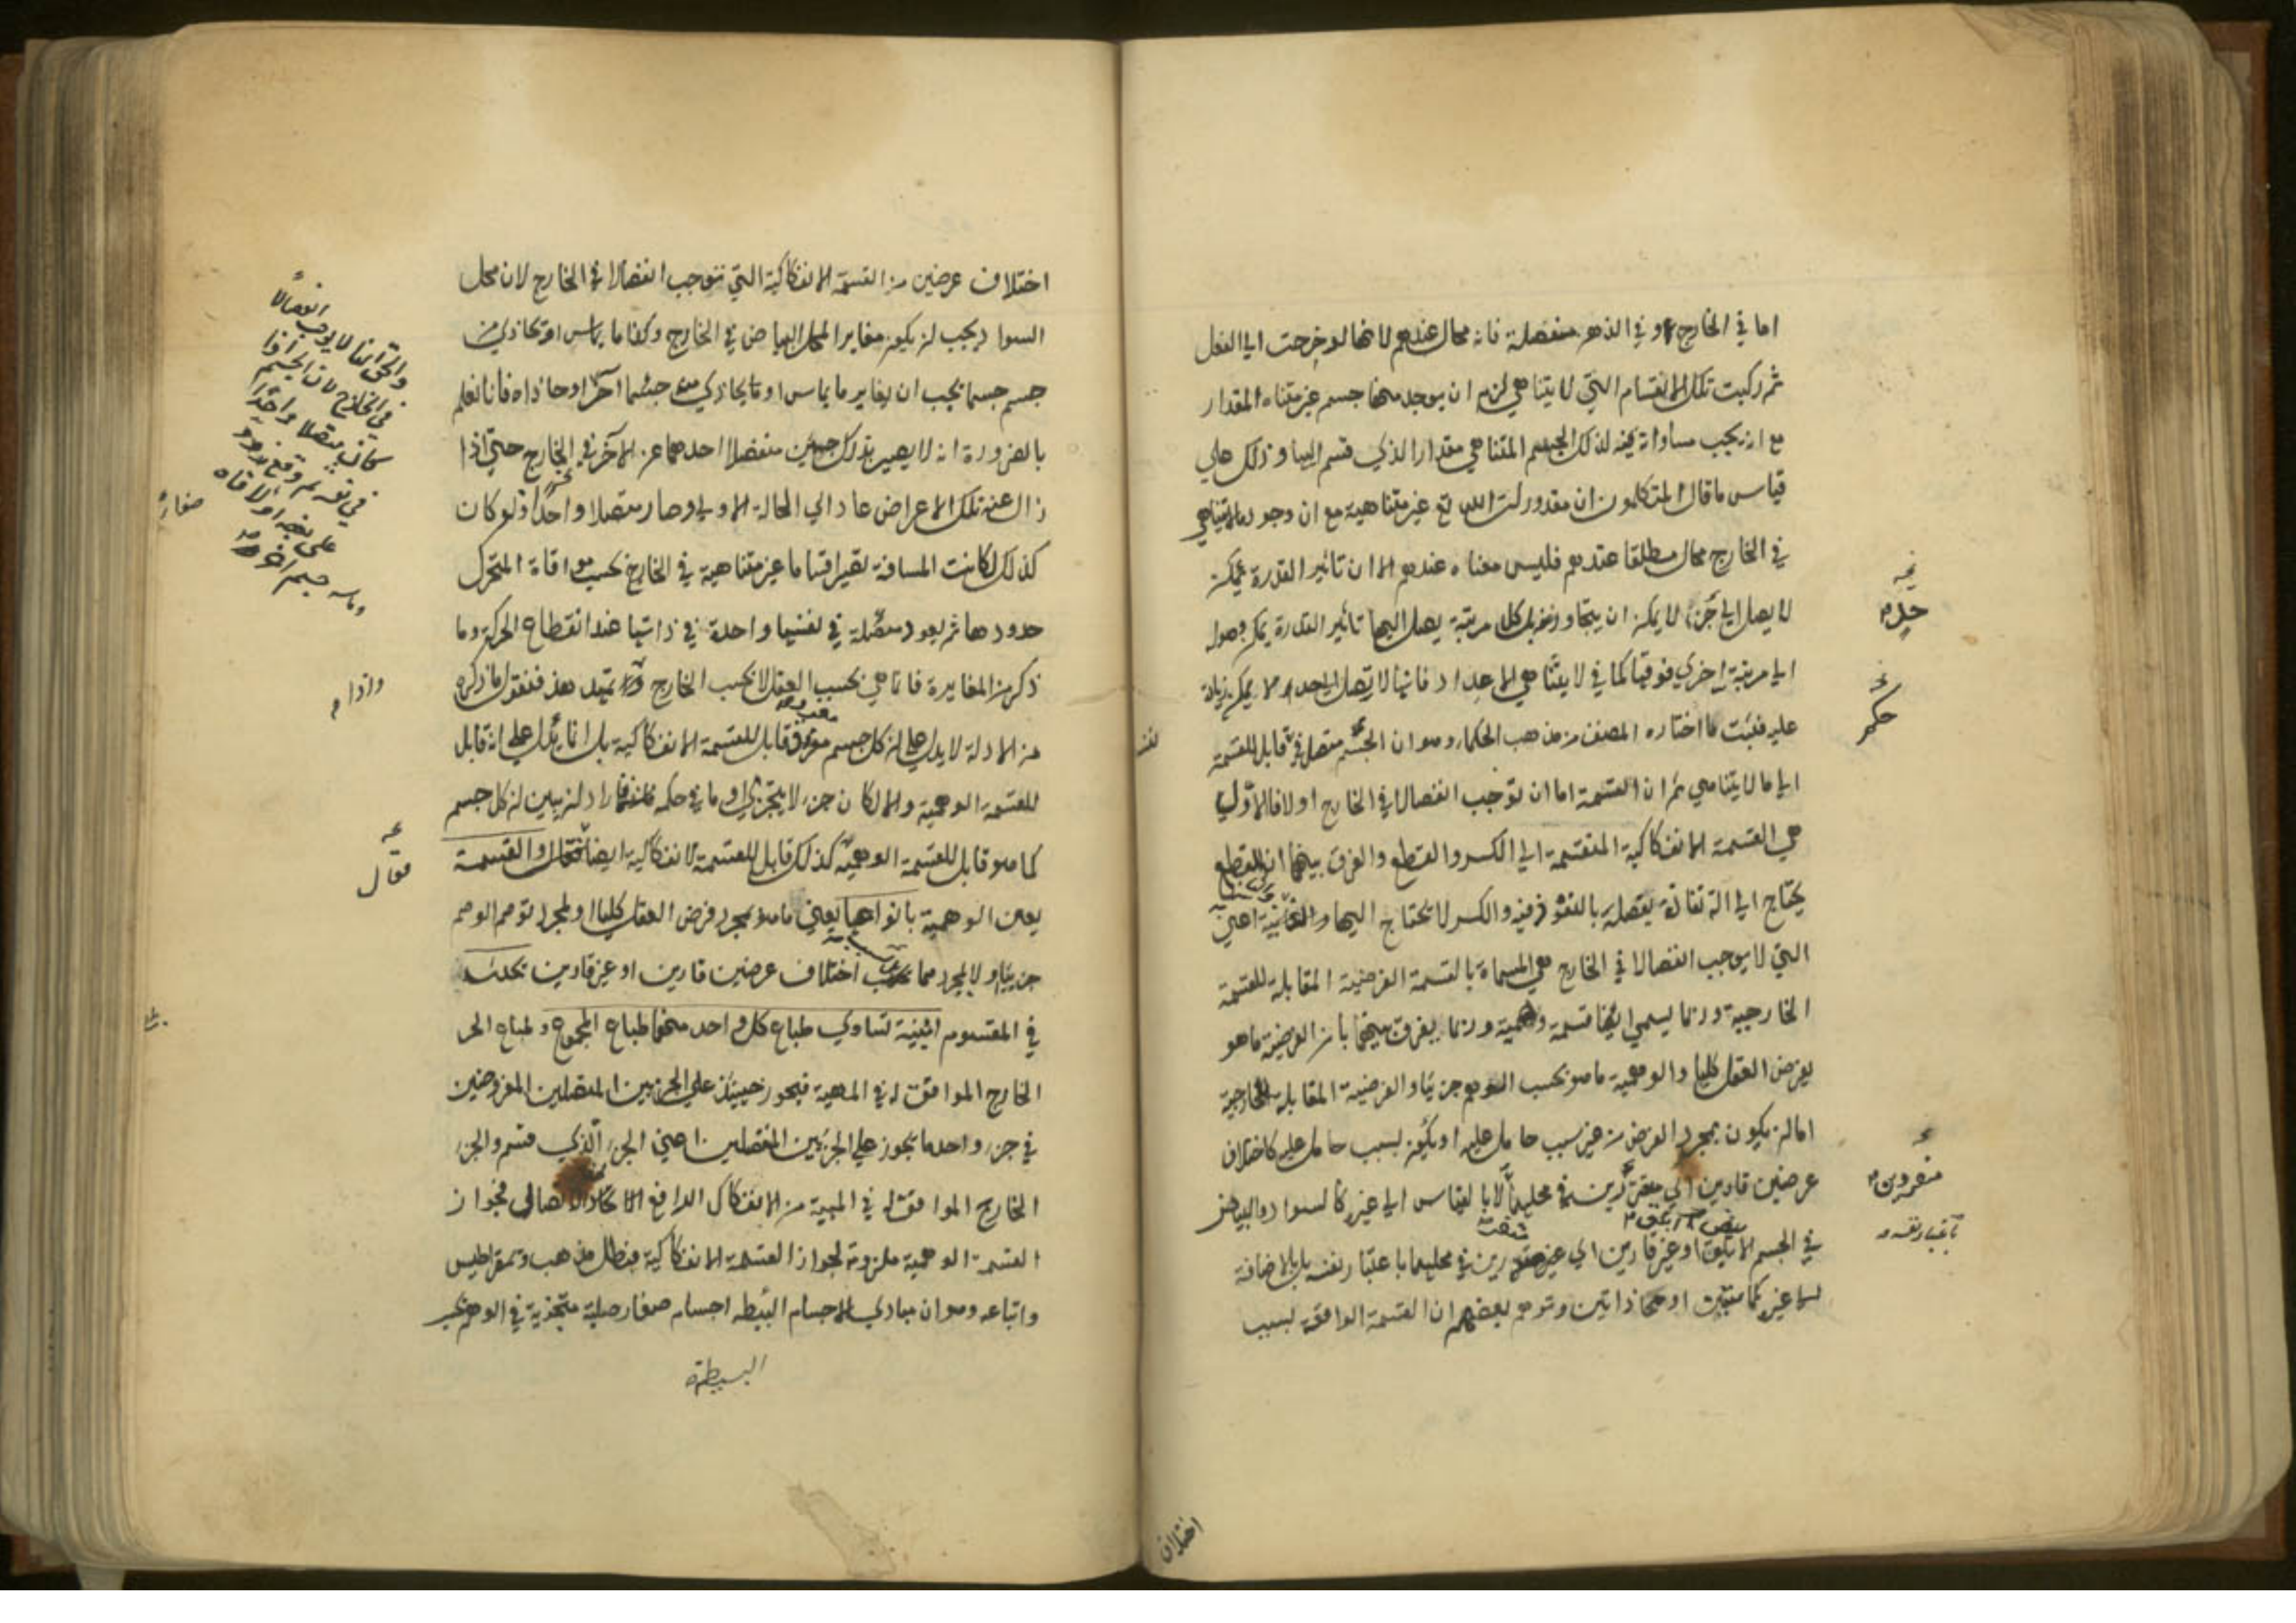 اما في الخارج او في الذهن منفصلة فانه محال عندهم لانها لو خرجت الى الفعل
ثم ركبت تلك الانقسام التي لا يتناهى لزم ان يوجد منها جسم غير متناه المقدار
مع انه يجب مساواته لذلك الجسم المتناهي مقدارا لذي قسم اليها وذلك على
قياس ما قال المتكلمون ان مقدورات الله تع غير متناهية مع ان وجود ما لا يتناهى
في الخارج محال مطلقا عندهم فليس معناه عندهم الا ان تاثير القدرة يمكن
لا يصل الى لا يمكن ان يتجاوز بل كل مرتبة يصل اليها تاثير القدرة يمكن وصوله
الى مرتبة اخرى فوقها كما في لا يتناهى الاعداد فانها لا تصل الى حد لا يمكن زيادة
عليه فثبت ما اختاره المصنف من مذهب الحكماء وهو ان الجسم متصل قابل للقسمة
الى ما لا يتناهى ثم ان القسمة اما ان توجب انفصالا في الخارج او لا فالاولى
هي القسمة الانفكاكية المنقسمة الى الكسر والقطع والفرق بينهما ان القطع
يحتاج الى الة نفاذة بالنفوذ فيه والكسر لا يحتاج اليها والثانية اعني
التي لا يوجب انفصالا في الخارج هي المسماة بالقسمة الفرضية المقابلة للقسمة
الخارجية وربما يسمى ايضا قسمة وهمية وربما يفرق بينهما بان الفرضية ما هو
بفرض العقل كليا والوهمية ما هو بحسب التوهم جزئيا والفرضية المقابلة للخارجية
اما ان يكون بمجرد الفرض من غير سبب حامل عليه او يكون بسبب حامل عليه كاختلاف
عرضين قارين اي متقررين في محليهما لا بالقياس الى غيره كالسواد والبياض
في الجسم الابلق او غير قارين اي غير متقررين في محليهما باعتبار نفسه بل بالاضافة
لى غيره كمماستين او محاذاتين وتوهم بعضهم ان القسمة الواقعة بسبب
حكم
منفردين
باعتبار نفسه
اختلاف
اختلاف عرضين من القسمة الانفكاكية التي توجب انفصالا في الخارج لان محل
السواد يجب ان يكون مغايرا لمحل البياض في الخارج وكذا ما يماس او يحاذي من
جسم جسما يجب ان يغاير ما يماس او ما يحاذي منه جسما آخر او حاذاه فانا نعلم
بالضرورة انه لا يصير بذلك جسمين منفصلا احدهما عن الآخر في الخارج حتى اذا
زال عنه تلك الاعراض عاد الى الحالة الاولى وصار متصلا واحدا ولو كان
كذلك لكانت المسافة تصير اقساما غير متناهية في الخارج بحسب موافاة المتحرك
حدودها ثم يعود متصلة في نفسها واحدة في ذاتها عند انقطاع الحركة وما
ذكر من المغايرة فانما هي بحسب العقل لا بحسب الخارج تمهد هذا فنقول ما ذكره
من الادلة لا يدل على ان كل جسم قابل للقسمة الانفكاكية بل انما يدل على انه قابل
للقسمة الوهمية والا لكان جزء لا يتجزى او ما في حكمه فاراد ان يبين ان كل جسم
كما هو قابل للقسمة الوهمية كذلك قابل للقسمة الانفكاكية ايضا فقال والقسمة
يعني الوهمية بانواعها يعني ما هو بمجرد فرض العقل كليا او بمجرد توهم الوهم
جزئيا ولا بمجردهما اختلاف عرضين قارين او غير قارين تحدث
في المقسوم اثنينية تساوي طباع كل واحد منهما طباع المجموع وطباع
الخارج الموافق له في المهية فيجوز حينئذ على الجزئين المتصلين المفروضين
في جزء واحد ما يجوز على الجزئين المنفصلين اعني الجزء الذي قسم والجزء
الخارج الموافق له في المهية من الانفكاك الرافع للاتحاد الاتصالي فجواز
القسمة الوهمية ملزومة لجواز القسمة الانفكاكية فبطل مذهب ذيمقراطيس
واتباعه وهو ان مبادي الاجسام البسيطه اجسام صغار صلبة متجزية في الوهم غير
البسيطة
والحق انها لا يوجب انفصالا
في الخارج لان الجسم اذا
كان متصلا واحدا
في نفسه ثم وقع ضوء
على بعضه او لاقاه
وماسه جسم آخر
واذا
فقال
صغار